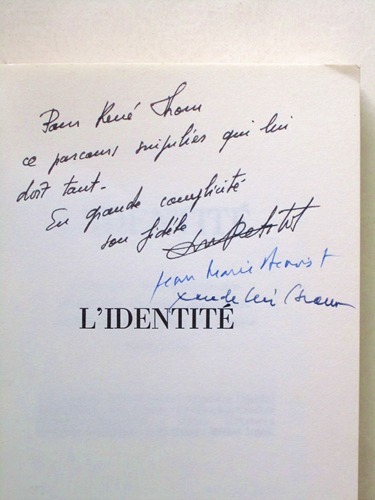 Pour René Thom
ce parcours singulier qui lui
doit tant -
En grande complicité
son fidèle Petitot
Jean Marie Benoist
Claude Lévi Strauss
L'IDENTITÉ